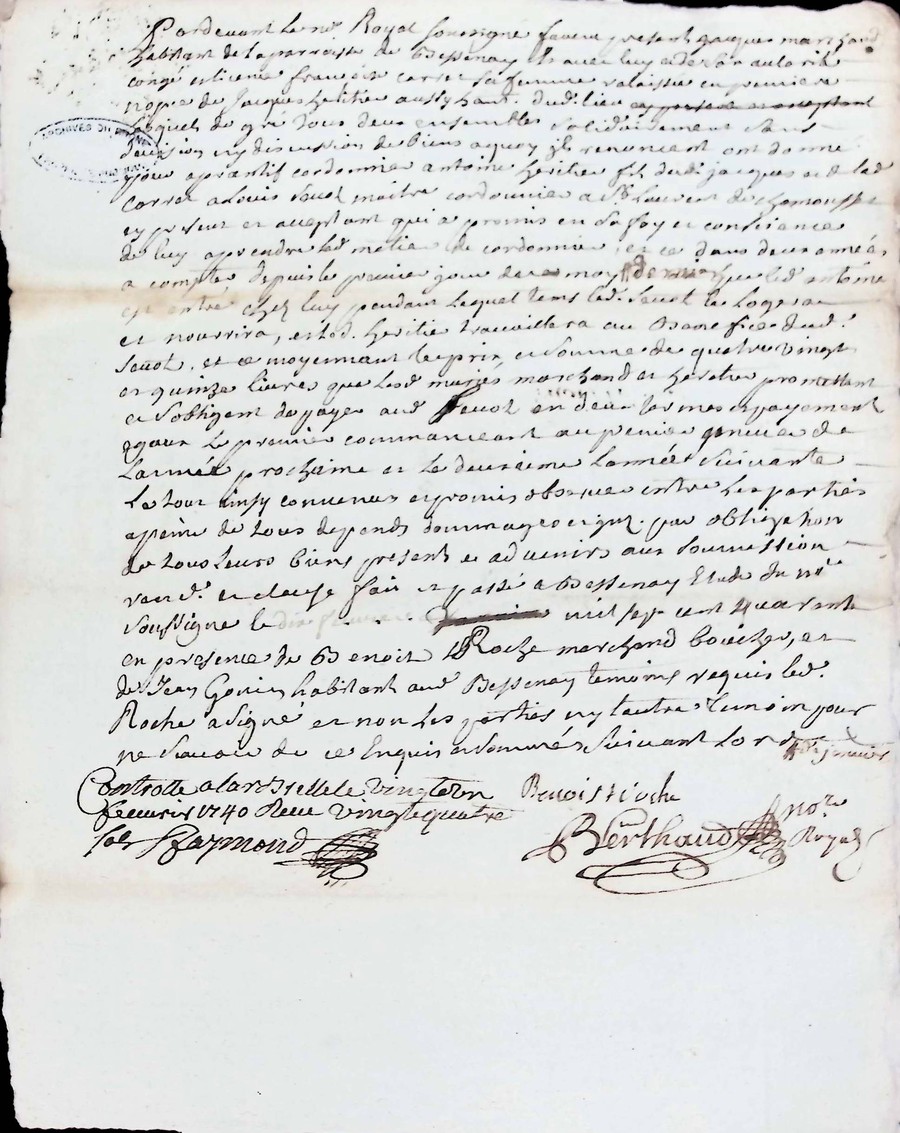 Pardevant le no.re Royal soussigné fut present jacques marchand
habitant de la parroisse de Bessenay et avec luy et de son autorité
congé et licence francoise carret sa femme relaissée en premiere
nopce de jacques heritier aussy habt. dudit lieu
lesquels de gré tous deux ensembles solidairement sans
division ny discution de biens a quoy ils renoncent ont donné
pour aprantif cordonnier antoine heritier fils dudt jacques et de lad
carret a louis maitre cordonnier a St laurent de chamousset
cy present et acceptant qui a promis en sa foy et consciance
de luy aprendre led metier de cordonnier, et ce dans deux années
a compter depuis le premier jour de ce moy que led antoine
est entré chez luy pendant lequel tems led. le logera
et nourrira, et led. heritie travaillera au Benefice dud.
et ce moyennant le prix et somme de quatre vingt
et quinze livres que lesd mariés marchand et heritie promettent
et sobligent de payer aud en deux termes et payement
egaux le premier commanceant au premier janvier de
lannée prochaine et le deuxieme lannée suivante
le tout ainsy convenus et promis observer entre les parties
a peine de tous depends dommages et par obligation
de tous leurs biens present et advenirs aux soumission
ron.s et clause fait et passé a Bessenay Etude du no.re
soussigné le mil sept cent quarante
en presence de Benoit Roche marchand boucher, et
de Jean habitant aud Bessenay temoins requis led.
Roche a signé et non les parties ny lautre temoin pour
ne scavoir de ce Enquis et sommés suivant lord
janvier
Controlle a larbrelle le vingt
feuvrié 1740 Receu vingt quatre
sols Raymond
Benoist roche
Berthaud no.re
Royal
ARCHIVES DU RHÔNE